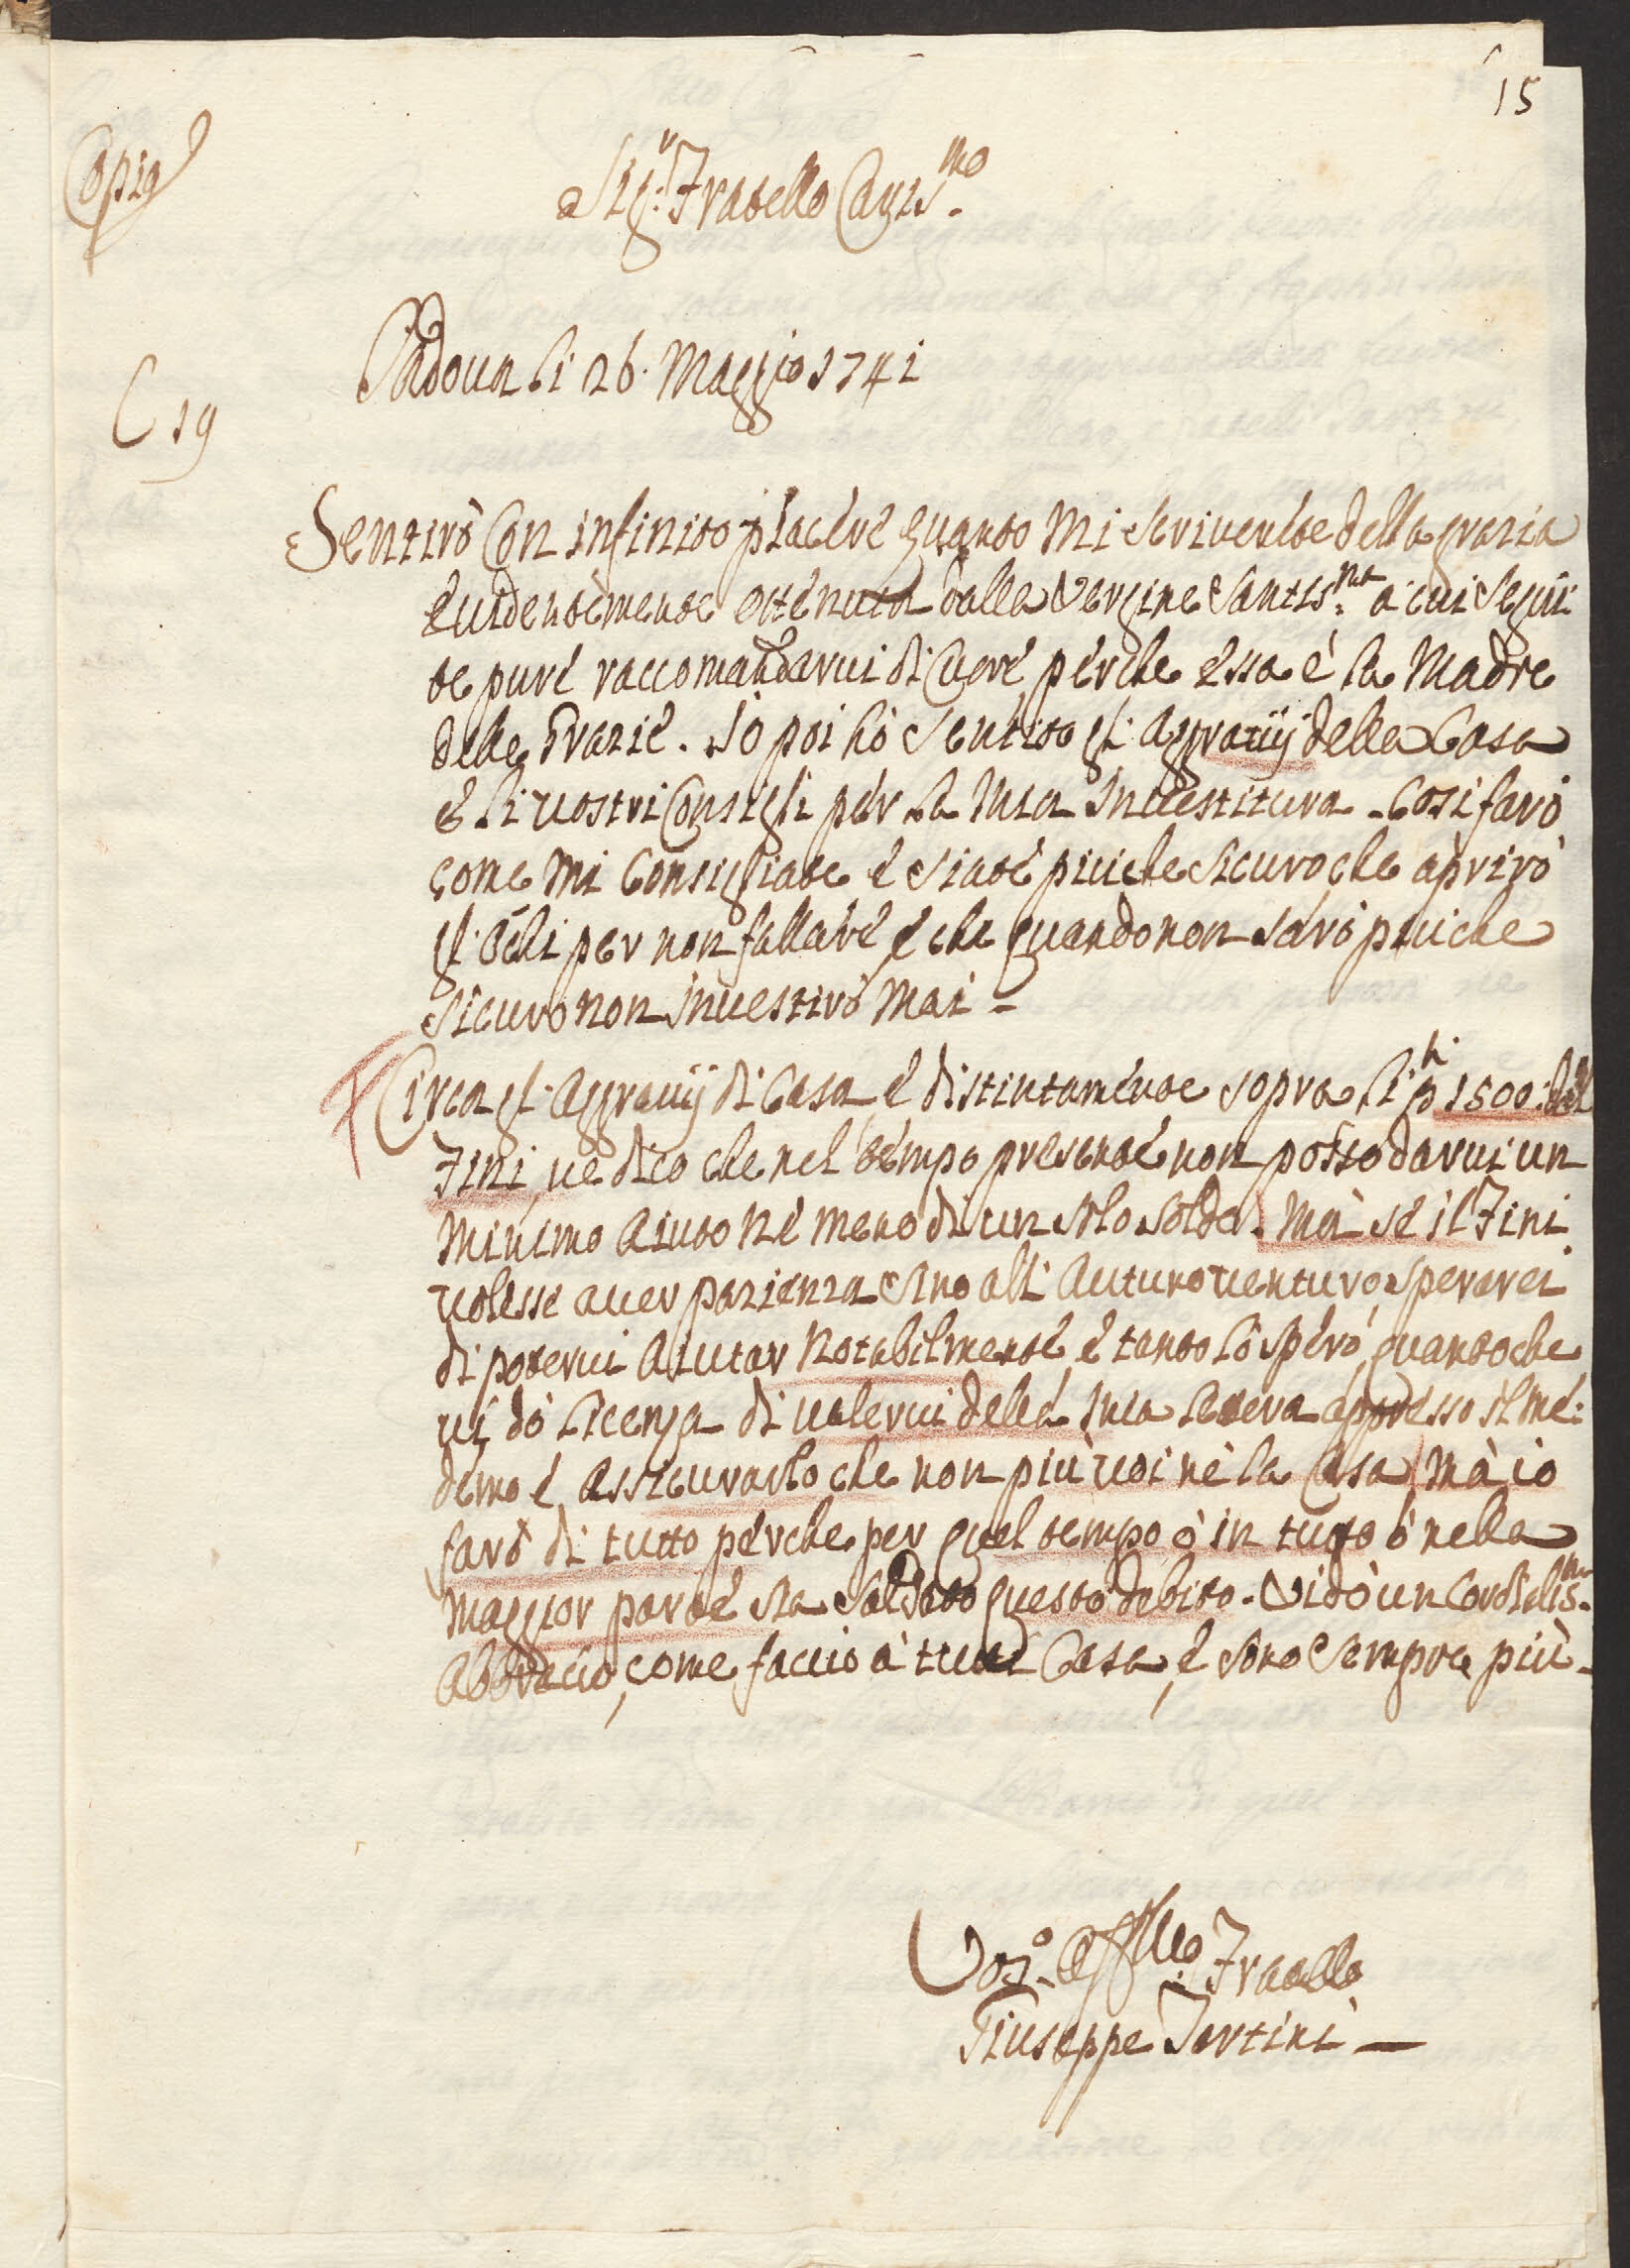 15
Copia
Sig:r Fratello Caris.mo
Padoua li 26. Maggio 1741
C 19
Sentirò con infinito piacere quanto mi scriuerete della grazia
euidentemente ottenuta dalla Vergine Santis:ma à cui segui:
te pure raccomandarui di cuore perche essa è la Madre
delle Grazie. Io poi hò sentito gl'aggrauij della Casa
e li uostri Consigli per la mia Inuestitura. Cosi farò
come mi Consigliate e siate piuche sicuro che aprirò
gl'ochi per non fallare e che quando non sarò piuche
sicuro non inuestirò mai.
Circa gl'aggrauij di Casa e distintamente sopra li 1500: del
Fini ue dico che nel tempo presente non posso darui un
minimo aiuto nè meno di un solo soldo. Mà se il Fini
uolesse auer pazienza sino all'Autuno uenturo sperarei
di poterui aiutar notabilmente e tanto lo sperò, quantoche
ui dò licenza di ualerui della mia letera appresso il me:
demo e assicurarlo che non più uoi nè la Casa mà io
farò di tutto perche per quel tempo ò in tutto ò nella
maggior parte sia saldato questo debito. Vi dò un Cordialis.mo
abbracio, come faccio à tuta Casa, e sono sempre più.
Vos.o Aff.mo Fratello
Giuseppe Tartini